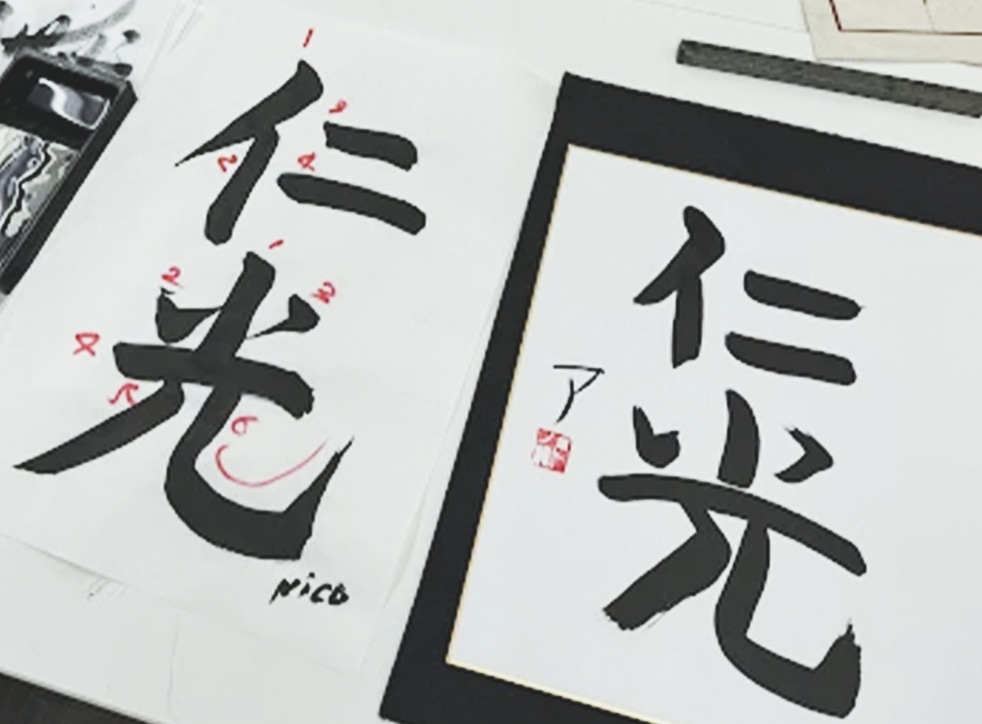 1
仁
2
3
4
光
1
2
3
4
5
6
Nico
仁
光
ア